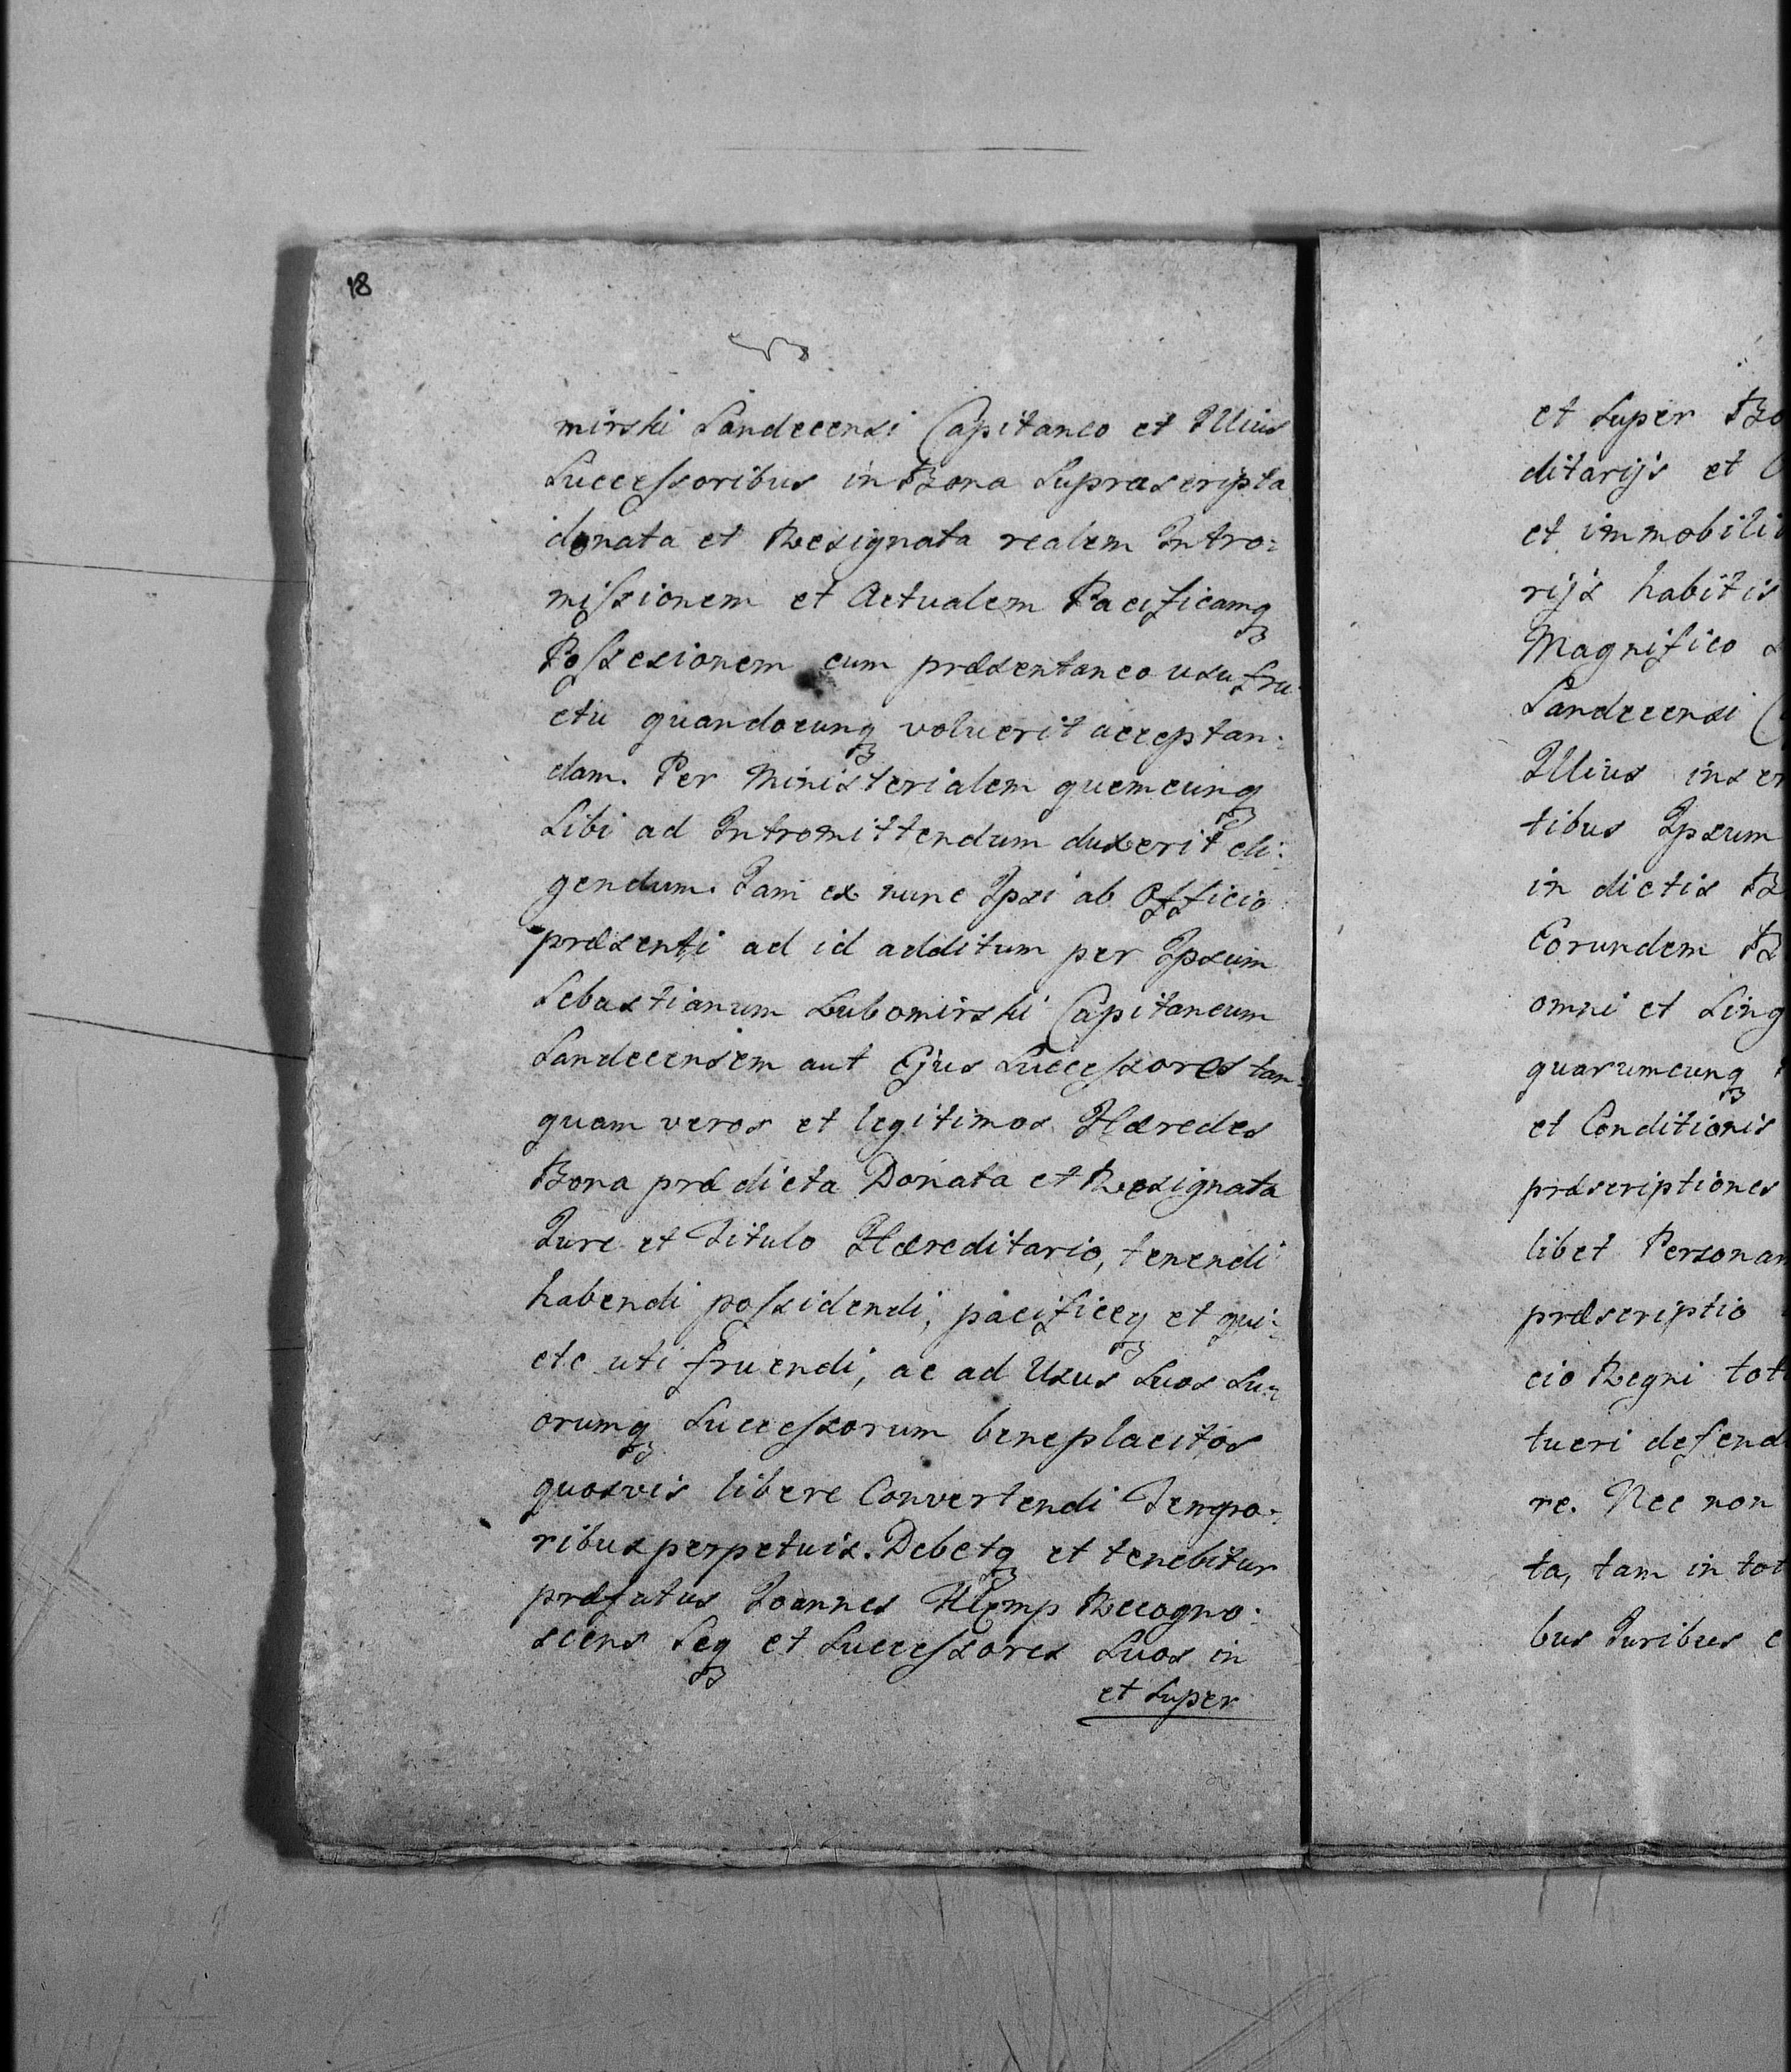 18
mirski Sandecensi Capitaneo et Illius
Successoribus in Bona Supraescripta
donata et Resignata realem Intro:
missionem et Actualem Pacificamq3
Possesionem cum præsentaneo usufru:
ctu quandocunq3 voluerit acceptan:
dam. Per Ministerialem quemcunq3
Sibi ad Intromittendum duxerit eli:
gendum. Jam ex nunc Ipsi ab Officio
præsenti ad id additum per Ipsum
Sebastianum Lubomirski Capitaneum
Sandecensem aut Ejus Successores tan:
quam veros et legitimos Hæredes
Bona prædicta Donata et Resignata
Jure et Titulo Hæreditario, tenendi
habendi possidendi, pacificeq3 et qui:
ete uti fruendi, ac ad Usus Suos Su:
orumq3 Successorum beneplacitos
quosvis libere Convertendi Tempo:
ribus perpetuis. Debetq3 et tenebitur
præfatus Joannes Recogno:
scens Seq3 et Successores Suos in
et Super
et Super Bo
ditarijs et
et immobili
rijs habitis
Magnifico
Sandecensi
Illius inser
tibus Ipsum
in dictis B
Eorundem B
omni et Sing
quarumcunq3
et Conditionis
præscriptiones
libet Personar
præscriptio
cio Regni tot
tueri defend
re. Nec non
ta, tam in tot
bus Juribus e